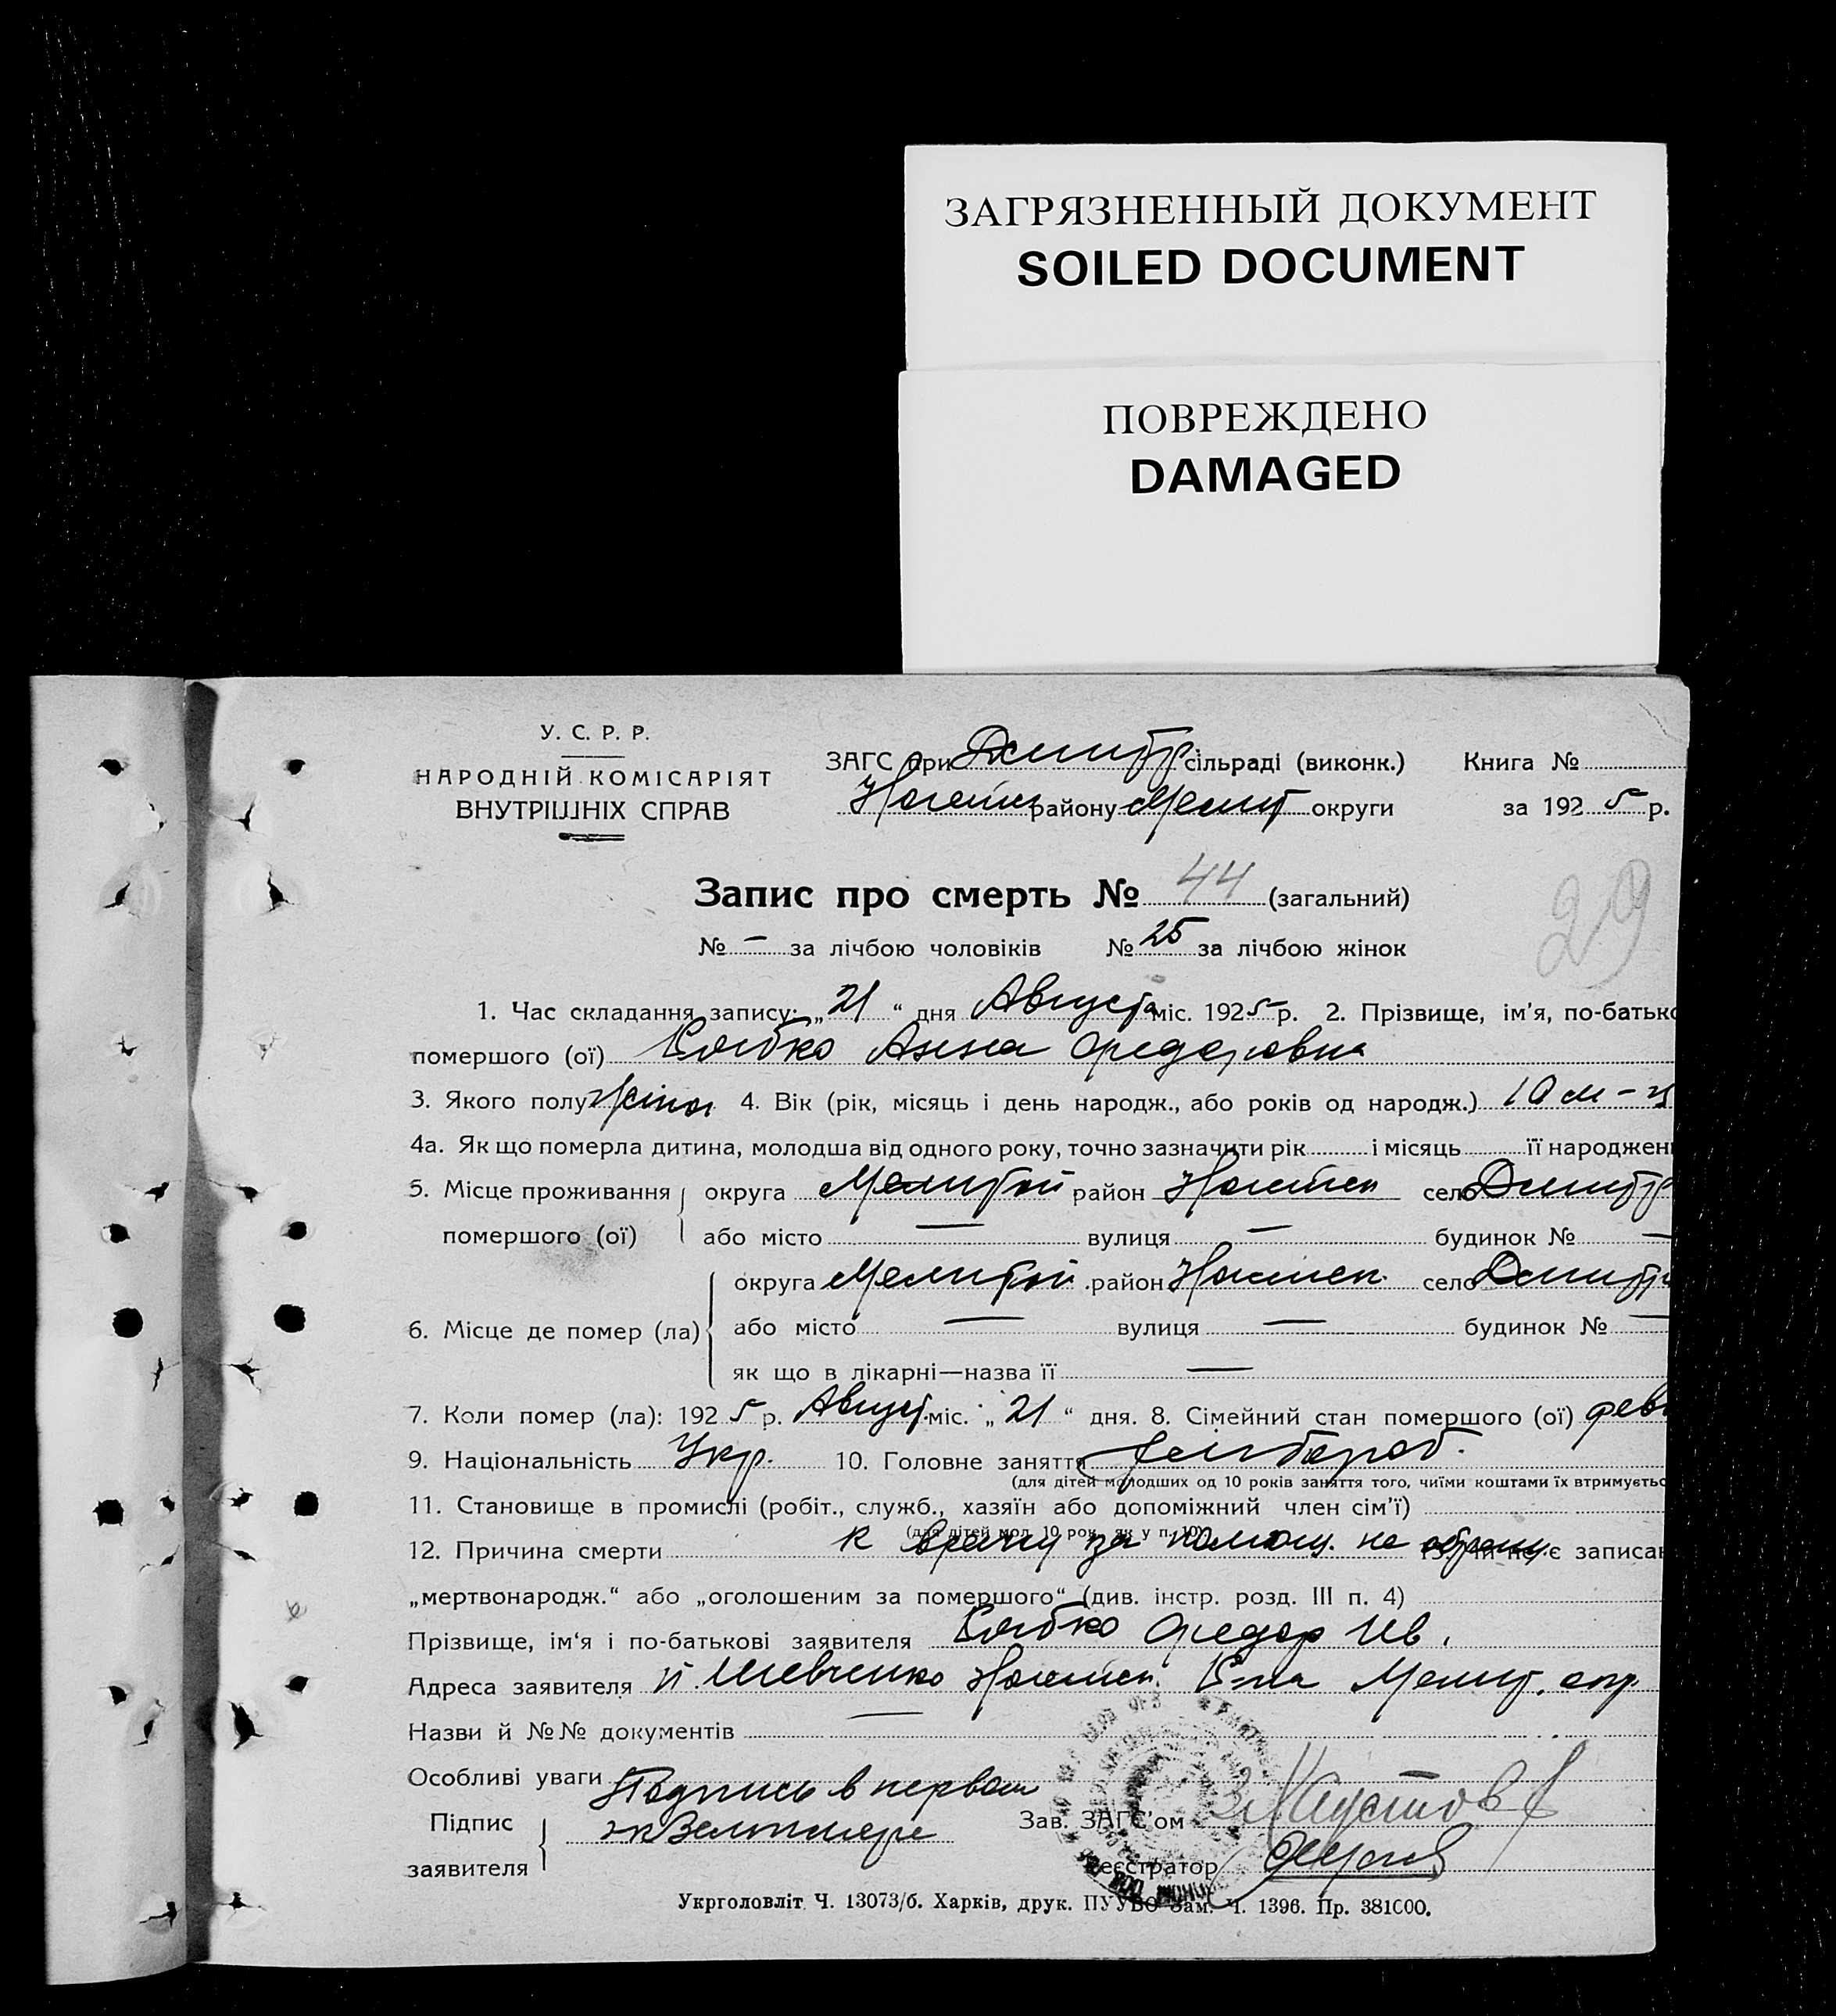 ЗАГРЯЗНЕННЫЙ ДОКУМЕНТ
SOILED DOCUMENT
ПОВРЕЖДЕНО
DAMAGED
У. С. Р. Р.
НАРОДНІЙ КОМІСАРІЯТ
ВНУТРІШНІХ СПРАВ
ЗАГС при Дмитр сільраді (виконк.) Книга №
району Мелит округи за 1925 р.
Запис про смерть № 44 (загальний)
29
№ — за лічбою чоловіків № 25 за лічбою жінок
1. Час складання запису: „21“ дня Августа міс. 1925 р. 2. Прізвище, ім'я, по-батько
помершого (ої) Анна Федоровна
3. Якого полу 4. Вік (рік, місяць і день народж., або років од народж.) 10 м-
4а. Як що померла дитина, молодша від одного року, точно зазначити рік і місяць її народжен
5. Місце проживання округа Мелитоп район село Дмитр
помершого (ої) або місто — вулиця — будинок № —
округа Мелитоп район село Дмитр
6. Місце де помер (ла) або місто — вулиця — будинок № —
як що в лікарні—назва її —
7. Коли помер (ла): 1925 р. Август міс. „21“ дня. 8. Сімейний стан помершого (ої)
9. Національність Укр. 10. Головне заняття
(для дітей молодших од 10 років заняття того, чиїми коштами їх втримуєтьс
11. Становище в промислі (робіт., служб., хазяїн або допоміжний член сім'ї)
(для дітей мол. 10 рок. як у п. 10)
12. Причина смерти к врачу за помощ. не обращ. 13. Чи не є записан
„мертвонародж.“ або „оголошеним за помершого“ (див. інстр. розд. III п. 4)
Прізвище, ім'я і по-батькові заявителя Федор Ив.
Адреса заявителя п. Шевченко Р-на Мелит. окр.
Назви й №№ документів —
Особливі уваги Подпись в первом
Підпис экземпляре Зав. ЗАГС'ом
заявителя Реєстратор
Укрголовліт Ч. 13073/б. Харків, друк. ПУУВО Зам. Ч. 1396. Пр. 381000.